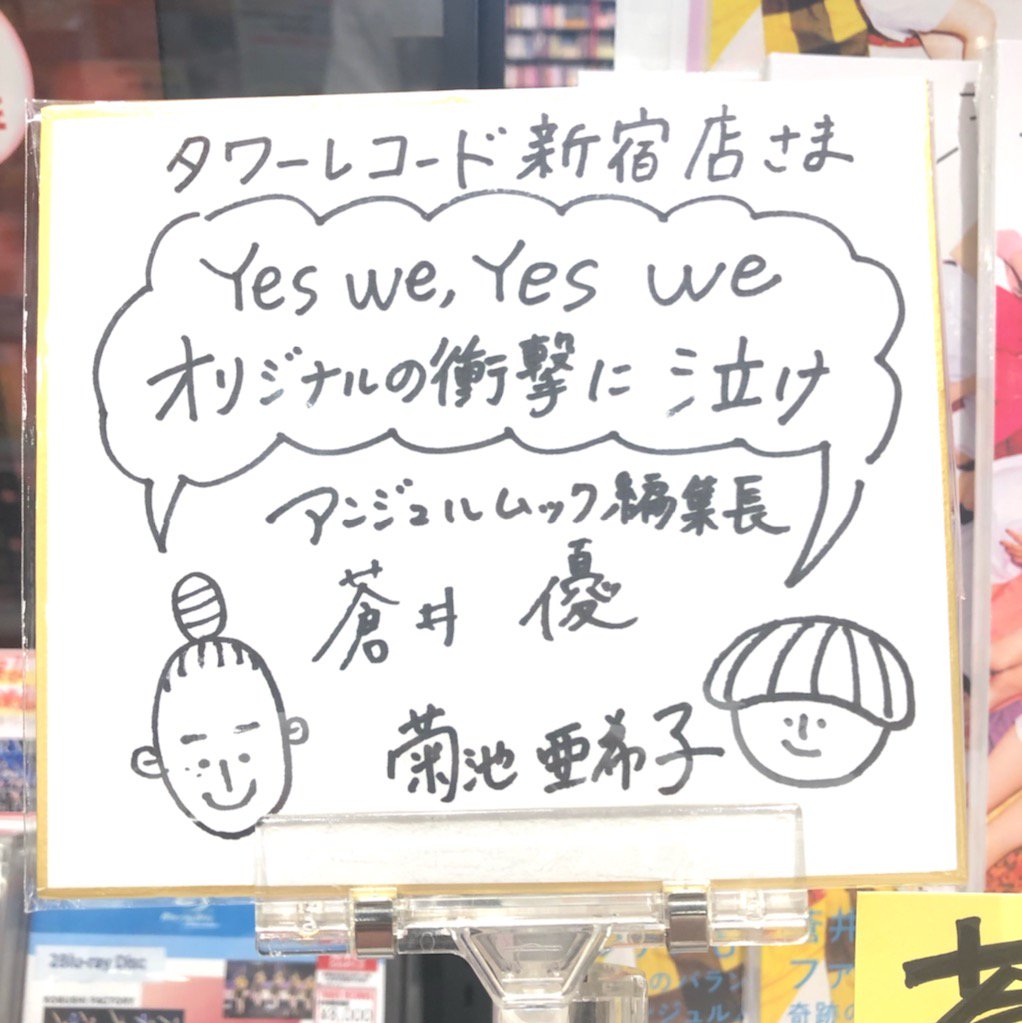 タワーレコード新宿店さま
Yes we, Yes we
オリジナルの衝撃に泣け
アンジュルムック編集長
蒼井 優
菊池亜希子
2Blu-ray Disc